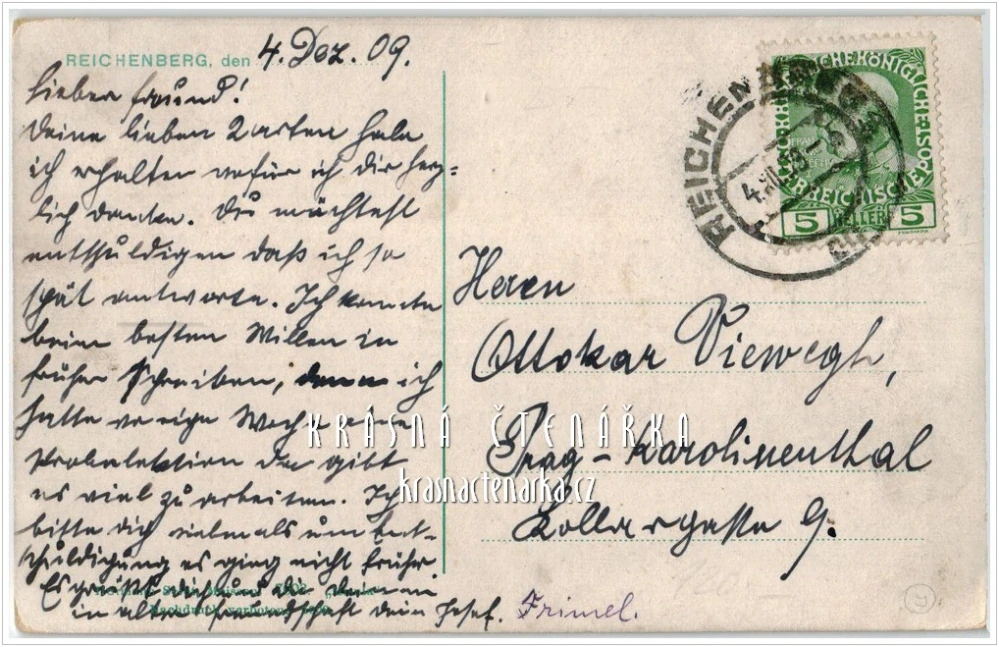 REICHENBERG, den 4. Dez. 09.
Lieber Freund!
Deine lieben Karten habe
ich erhalten wofür ich dir herz-
lich danke. Du möchtest
entschuldigen daß ich so
spät antworte. Ich konnte
beim besten Willen
früher schreiben, denn ich
hatte vorige Woche eine
Probelektion da gibt
es viel zu arbeiten. Ich
bitte dich vielmals um Ent-
schuldigung es ging nicht früher
Es grüßt dich und die deinen
in alter Freundschaft dein Josef. Frimel.
Nachdruck verboten
KAISERLICHE KÖNIGLICHE
ÖSTERREICHISCHE POST
5 HELLER 5
REICHENBERG
4.XII.09
Herrn
Ottokar Viewegh,
Prag-Karolinenthal
Kollargasse 9.
KRÁSNÁ ČTENÁŘKA
krasnactenarka.cz